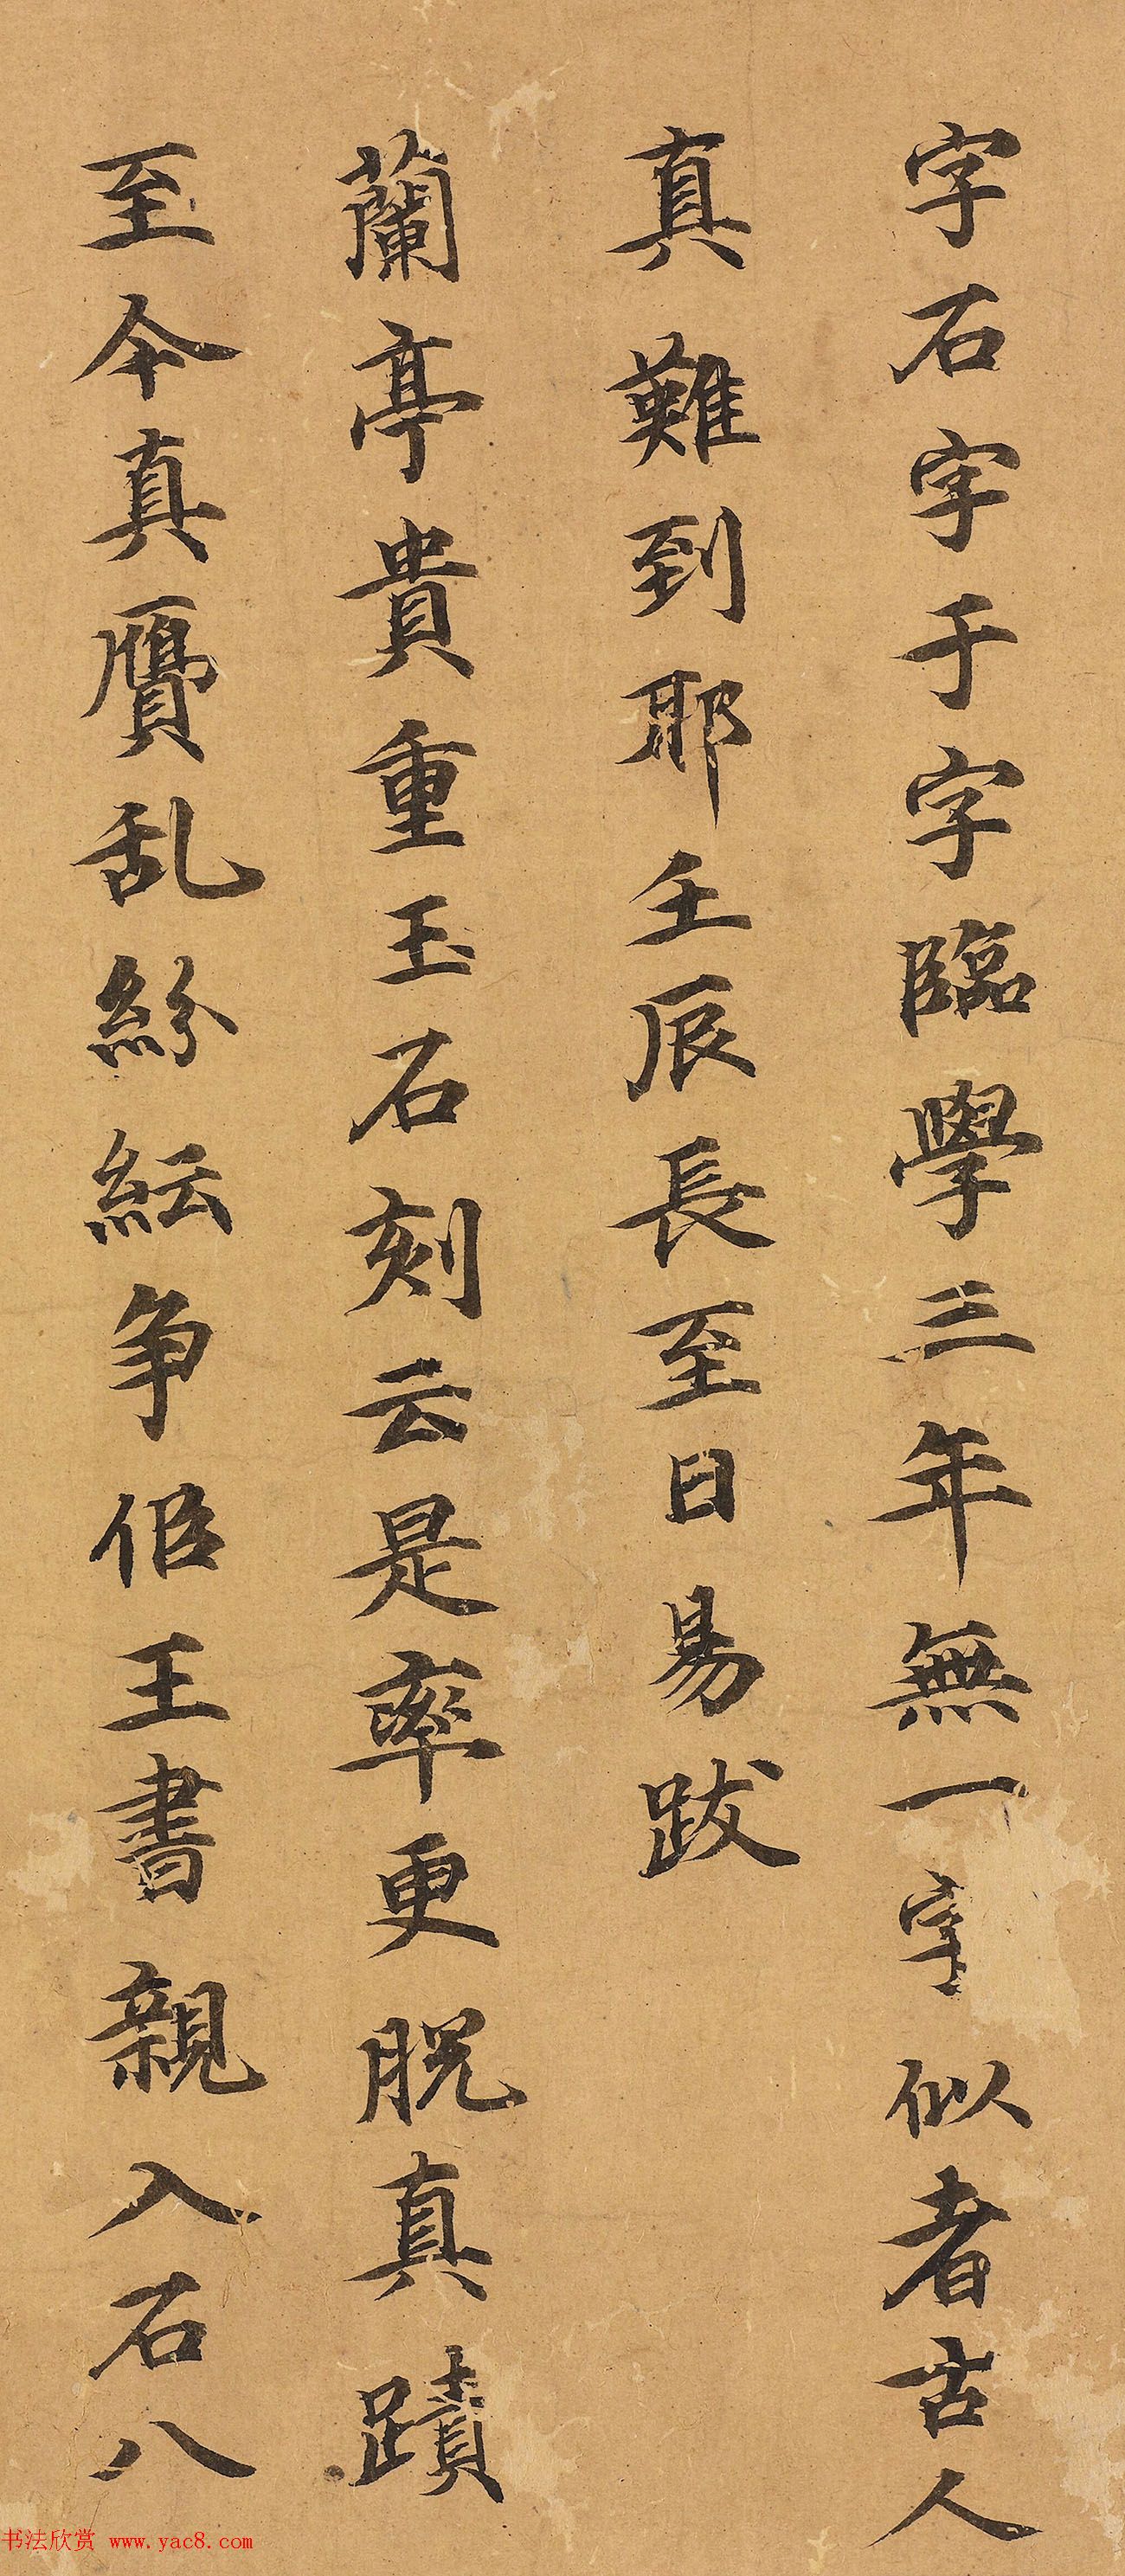 字石字于字臨學三年無一字似者古人
真難到耶壬辰長至日易跋
蘭亭貴重玉石刻云是率更脫真蹟
至今真贋乱紛紜争但王書親入石八
书法欣赏 www.yac8.com